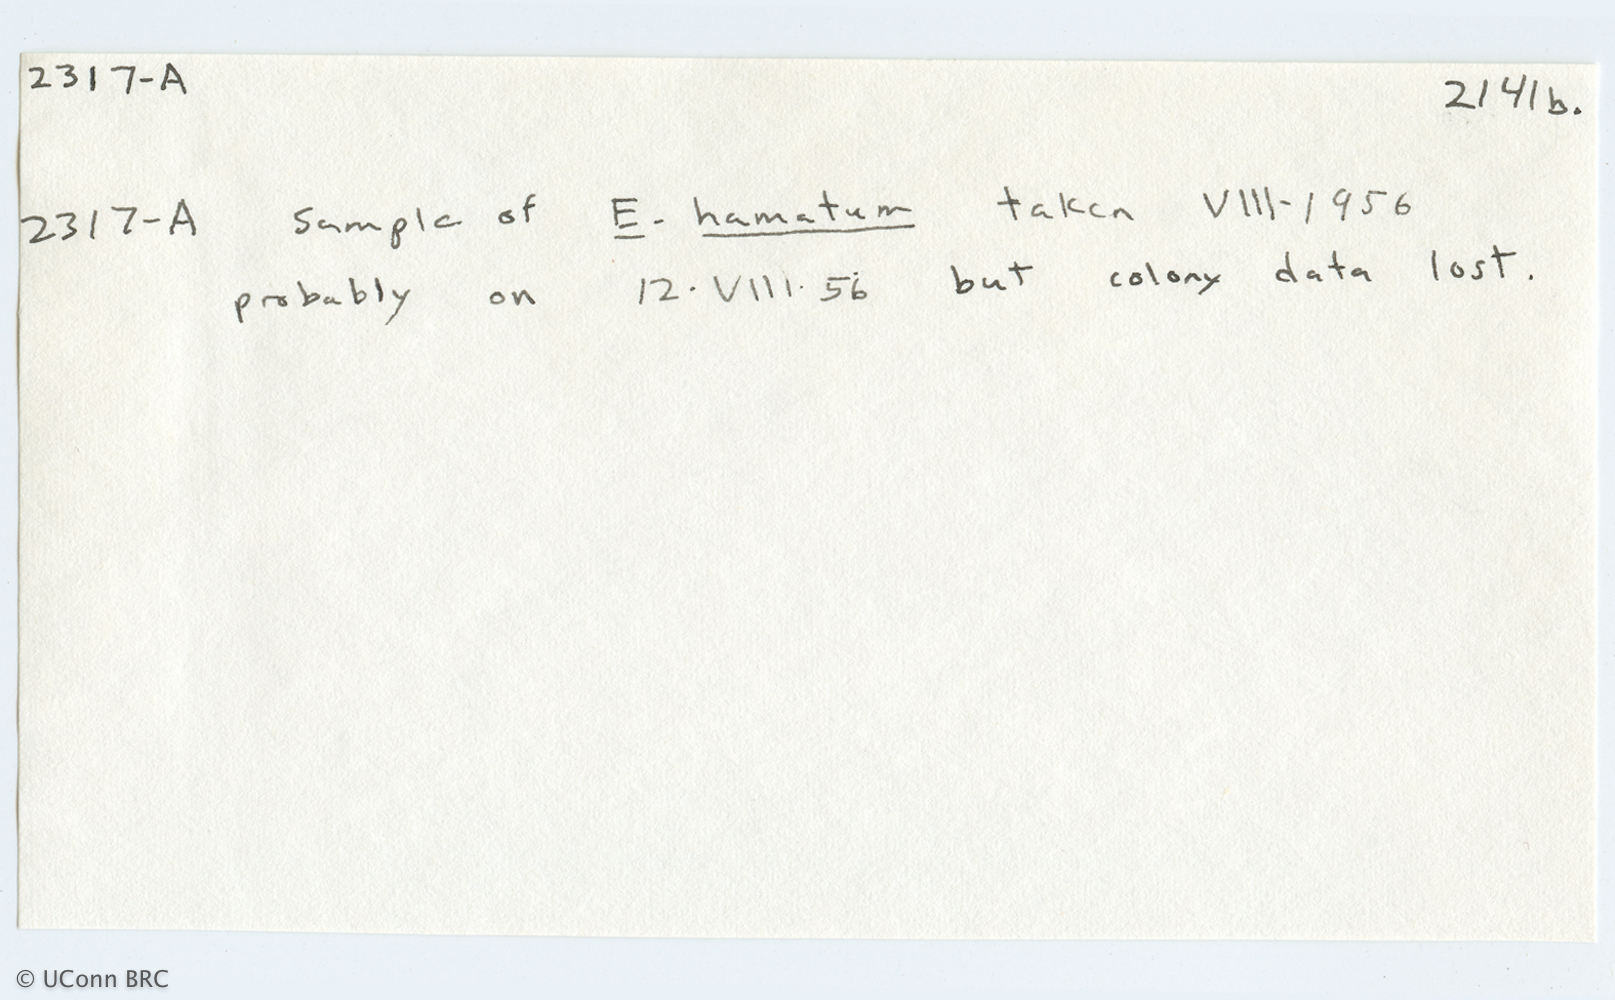 2317-A 2141b.
2317-A Sample of E. hamatum taken VIII-1956
probably on 12.VIII.56 but colony data lost.
© UConn BRC